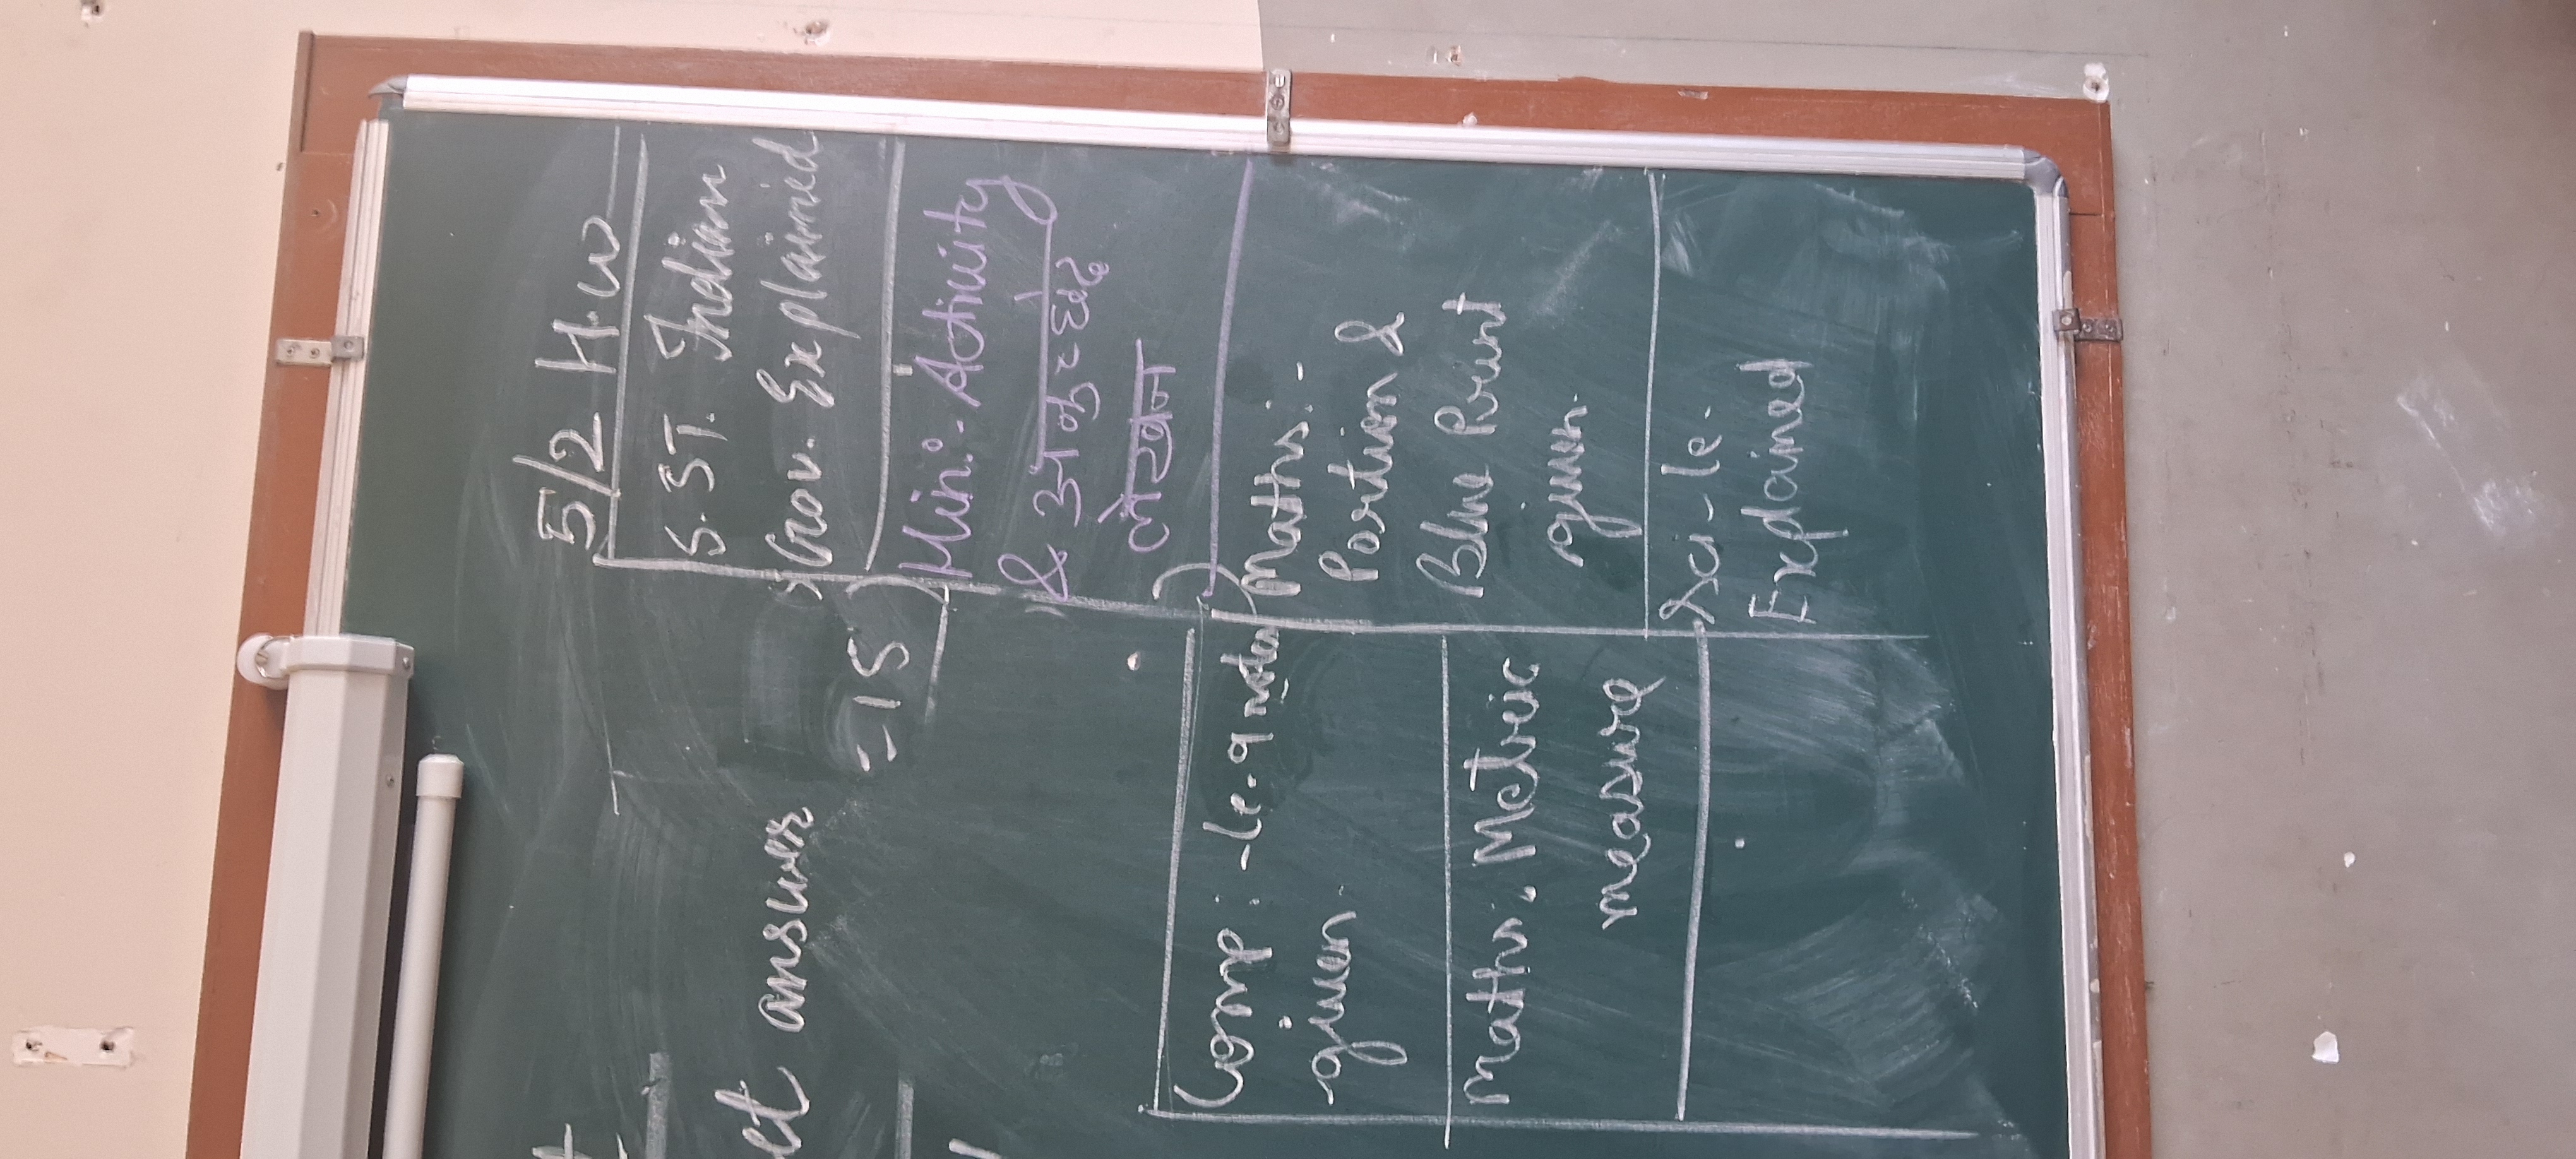 5/2 H.W
S. ST. Indian
Gov. Explained
Hin:- Activity
& अनुच्छेद
लेखन
Maths:-
Portion &
Blue Print
given.
Sci - le.
Explained
answer
= 15
Comp : - le. 9 notes
given.
maths: Metric
measure